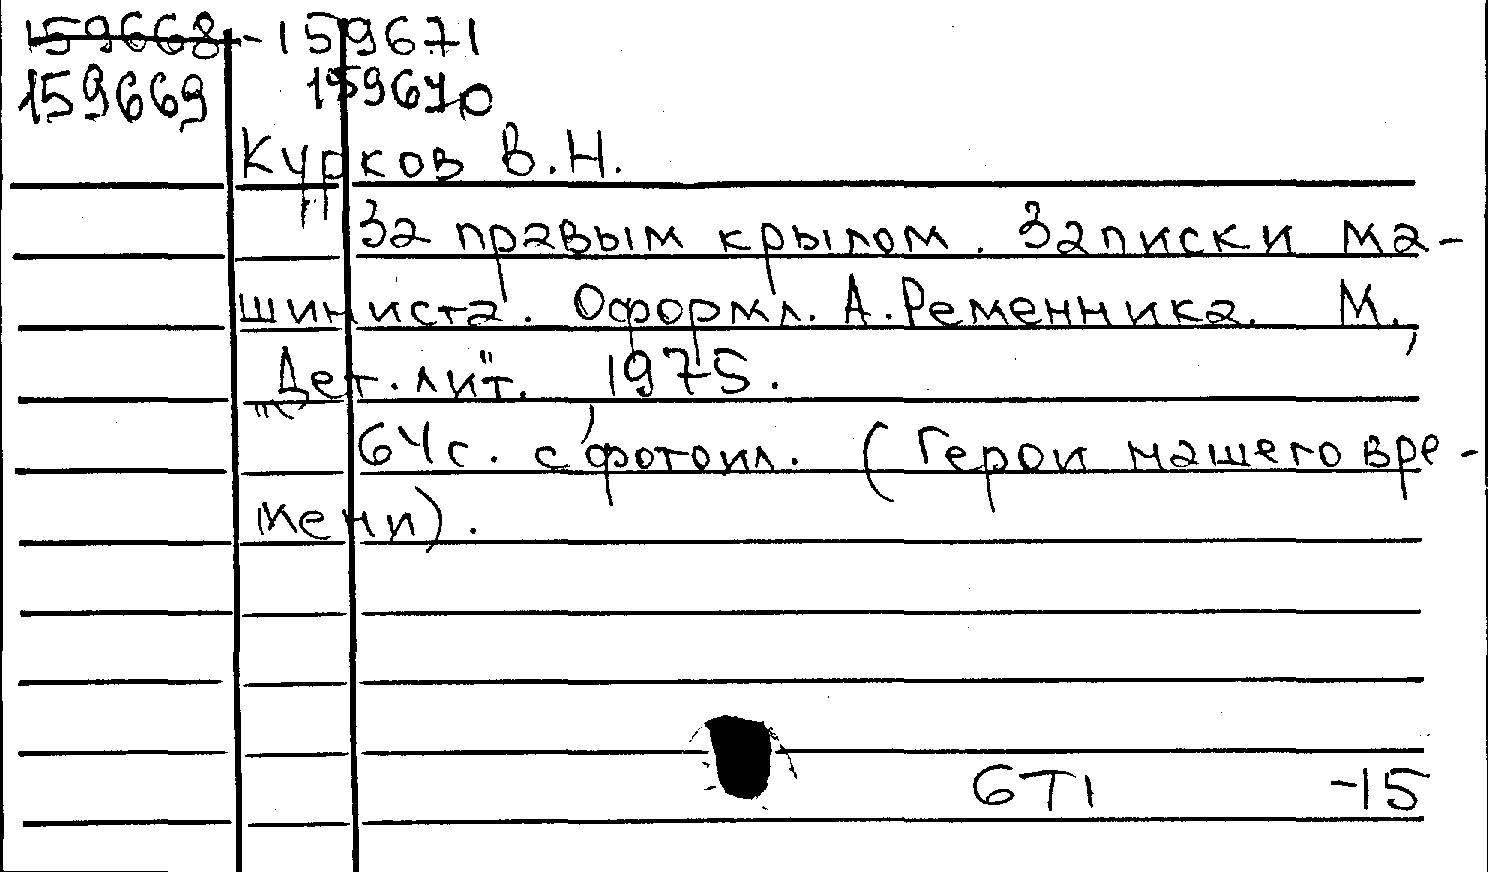 159668-159671
159669 159670
Курков В.Н.
За правым крылом. Записки ма-
шиниста. Оформл. А.Ременника. М.,
"Дет. лит." 1975.
64 с. с фотоил. (Герои нашего вре-
мени).
6Т1 -15